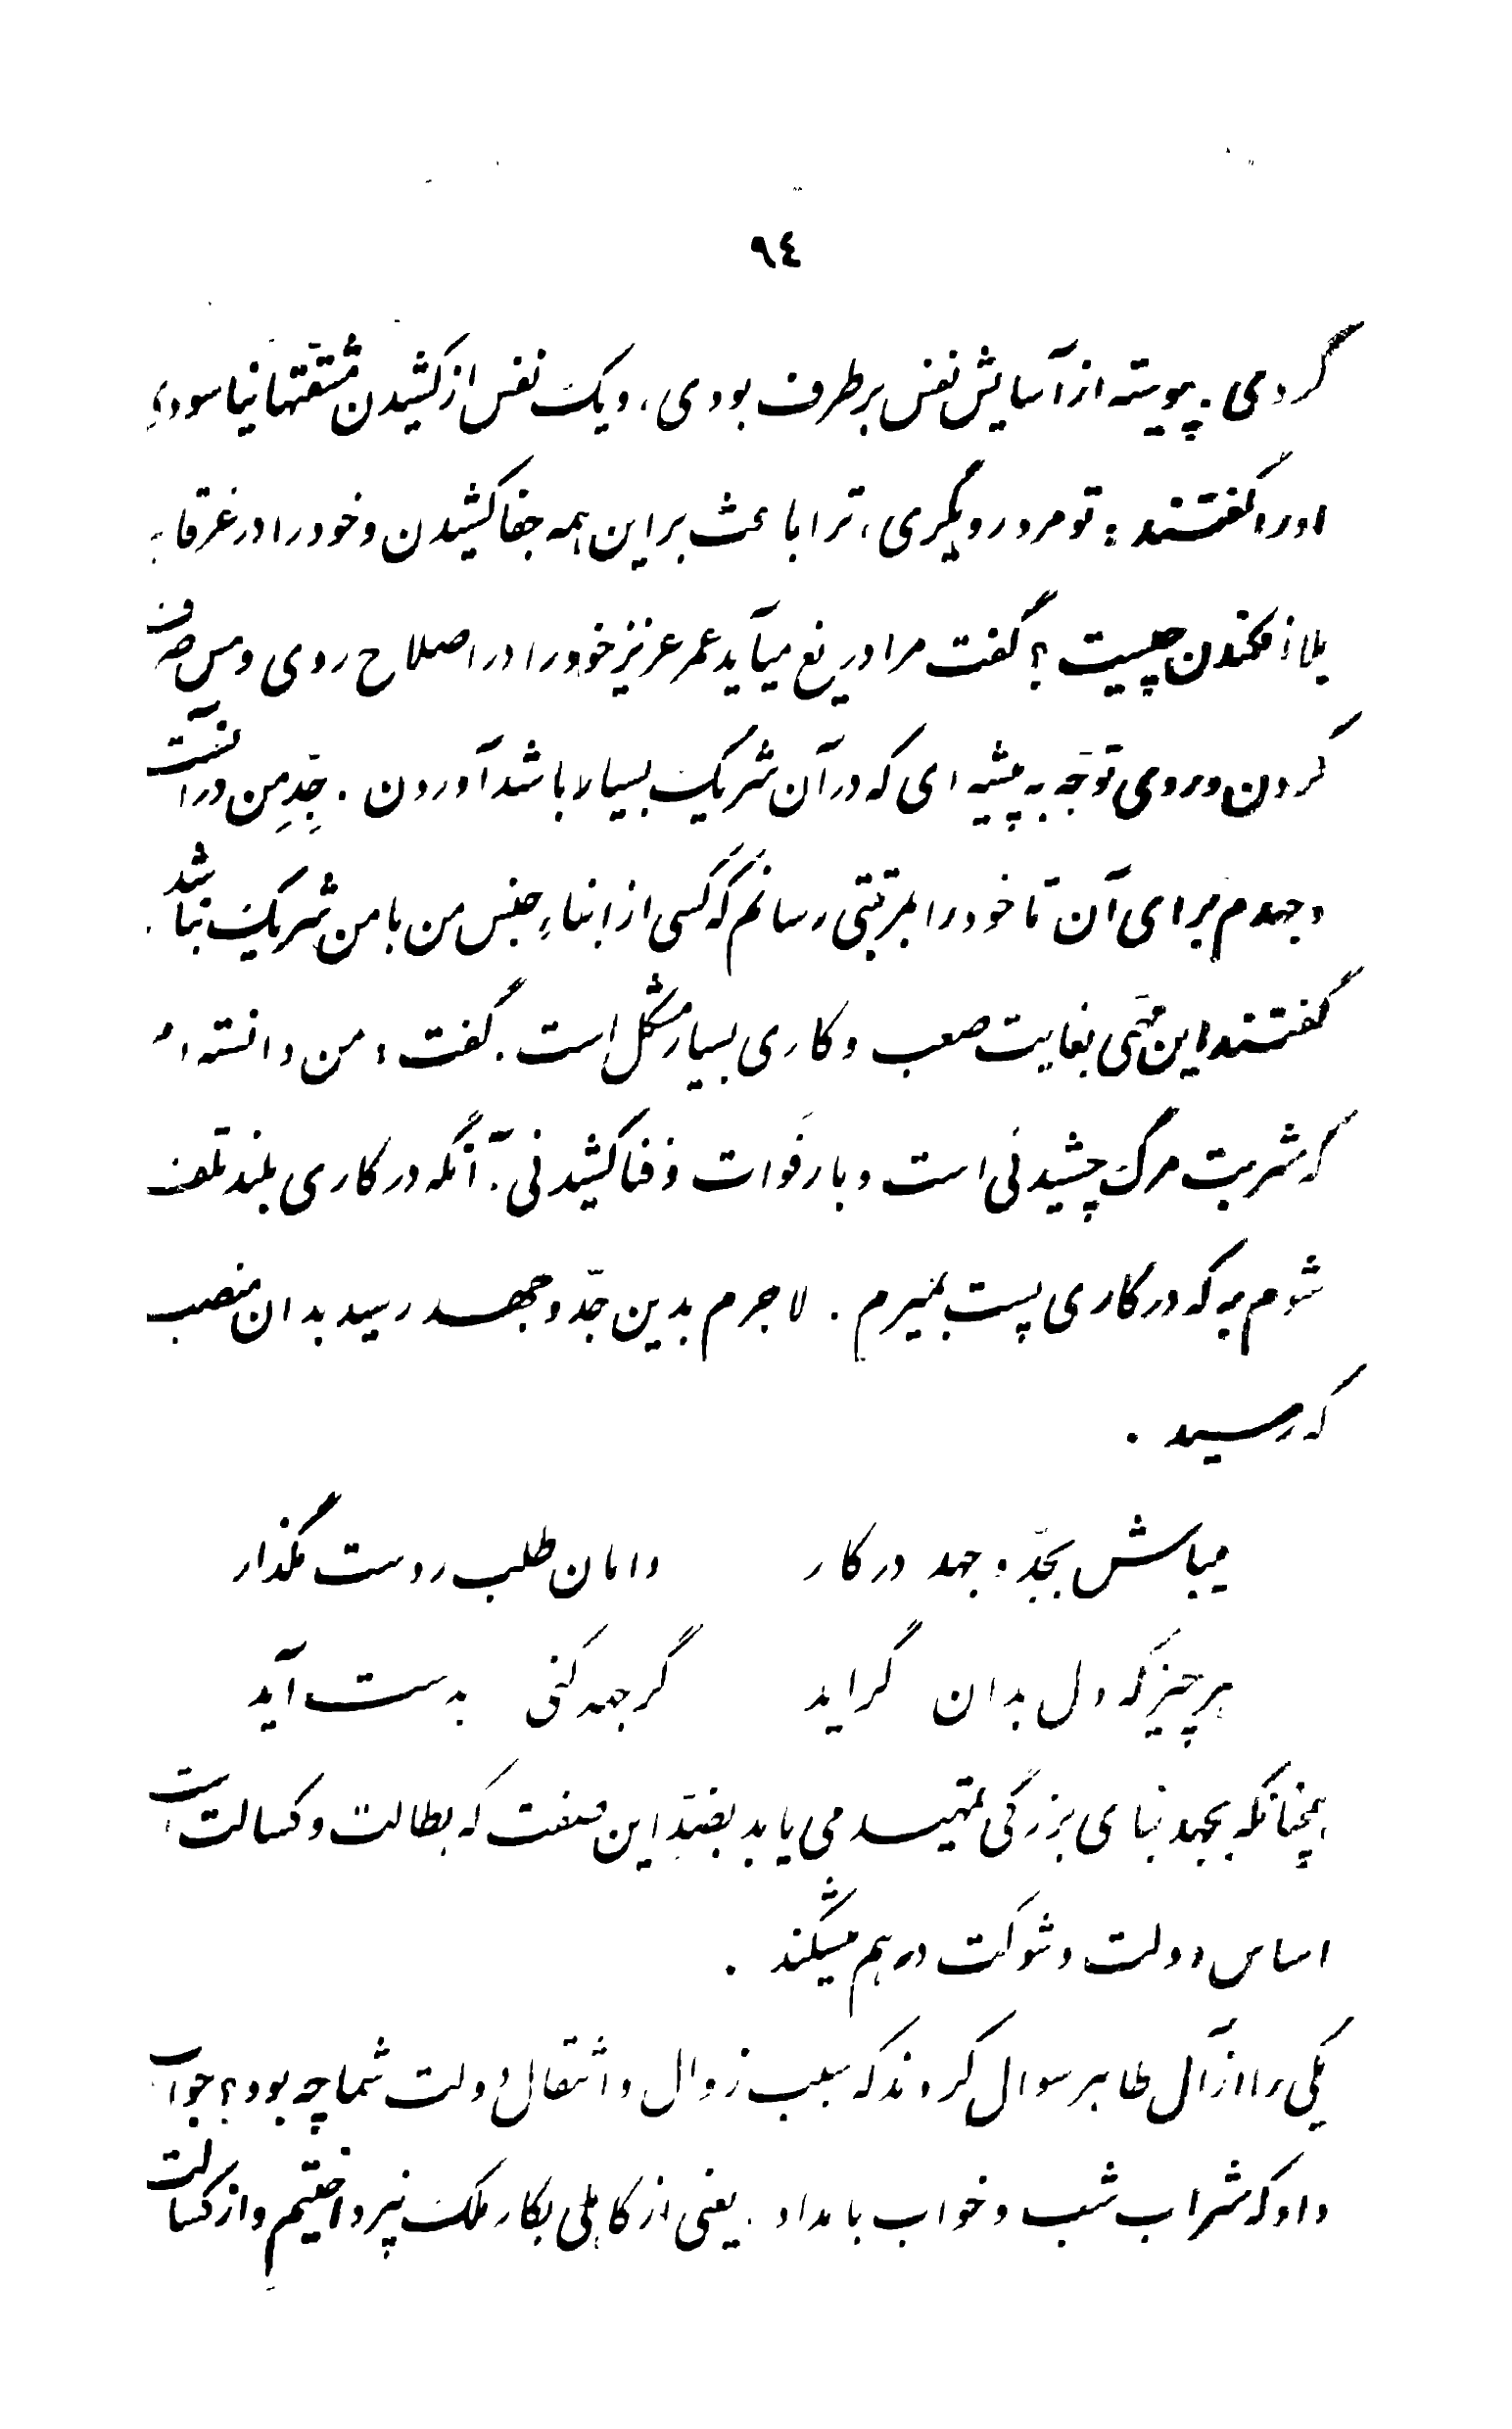 ٩٤
کردمی. پیوسته از آسایش نفس برطرف بودی، ویک نفس از کشیدن مشقّتها نیاسودی
اورا گفتند: تو مرد رویگری، ترا باعث براین همه جفا کشیدن وخود را در غرقاب
بلا افکندن چیست؟ گفت مرا دریغ میآید عمر عزیز خود را در اصلاح روی ومس صرف
کردن وروی توجّه به پیشه ای که در آن شریک بسیار باشد آوردن. جِدِّ من در آنست
وجهدم برای آن تا خود را بمرتبتی رسانم که کسی از ابناءِ جنس من با من شریک نباشد.
گفتند این مهّمی بغایت صعب وکاری بسیار مشکل است. گفت: من دانسته ام
که شربت مرگ چشیدنی است وبار فَوات وفنا کشیدنی. آنکه در کاری بلند تلف
شوم به که در کاری پست بمیرم. لاجرم بدین جدّ وجهد رسید بدان منصب
که رسید.
میباش بجدّ وجهد در کار دامان طلب ز دست مگذار
هر چیز که دل بدان گراید گر جهد کنی بدست آید
همچنانکه بجهد بنای بزرگی تمهید می یابد بضدّ این صفت که بطالت وکسالت است
اساس دولت وشوکت درهم میشکند.
یکی را از آل طاهر سوال کردند که سبب زوال وانتقال دولت شما چه بود؟ جواب
داد که شراب شب وخواب بامداد. یعنی از کاهلی بکار ملک نپرداختیم واز کسالت